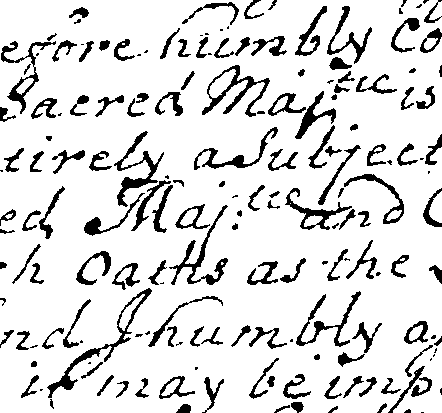 efore humbly Co
Sacred Maj:tie is
tirely a Subject
ed Maj:tie and
ch Oaths as the
nd I humbly a
it may be imp